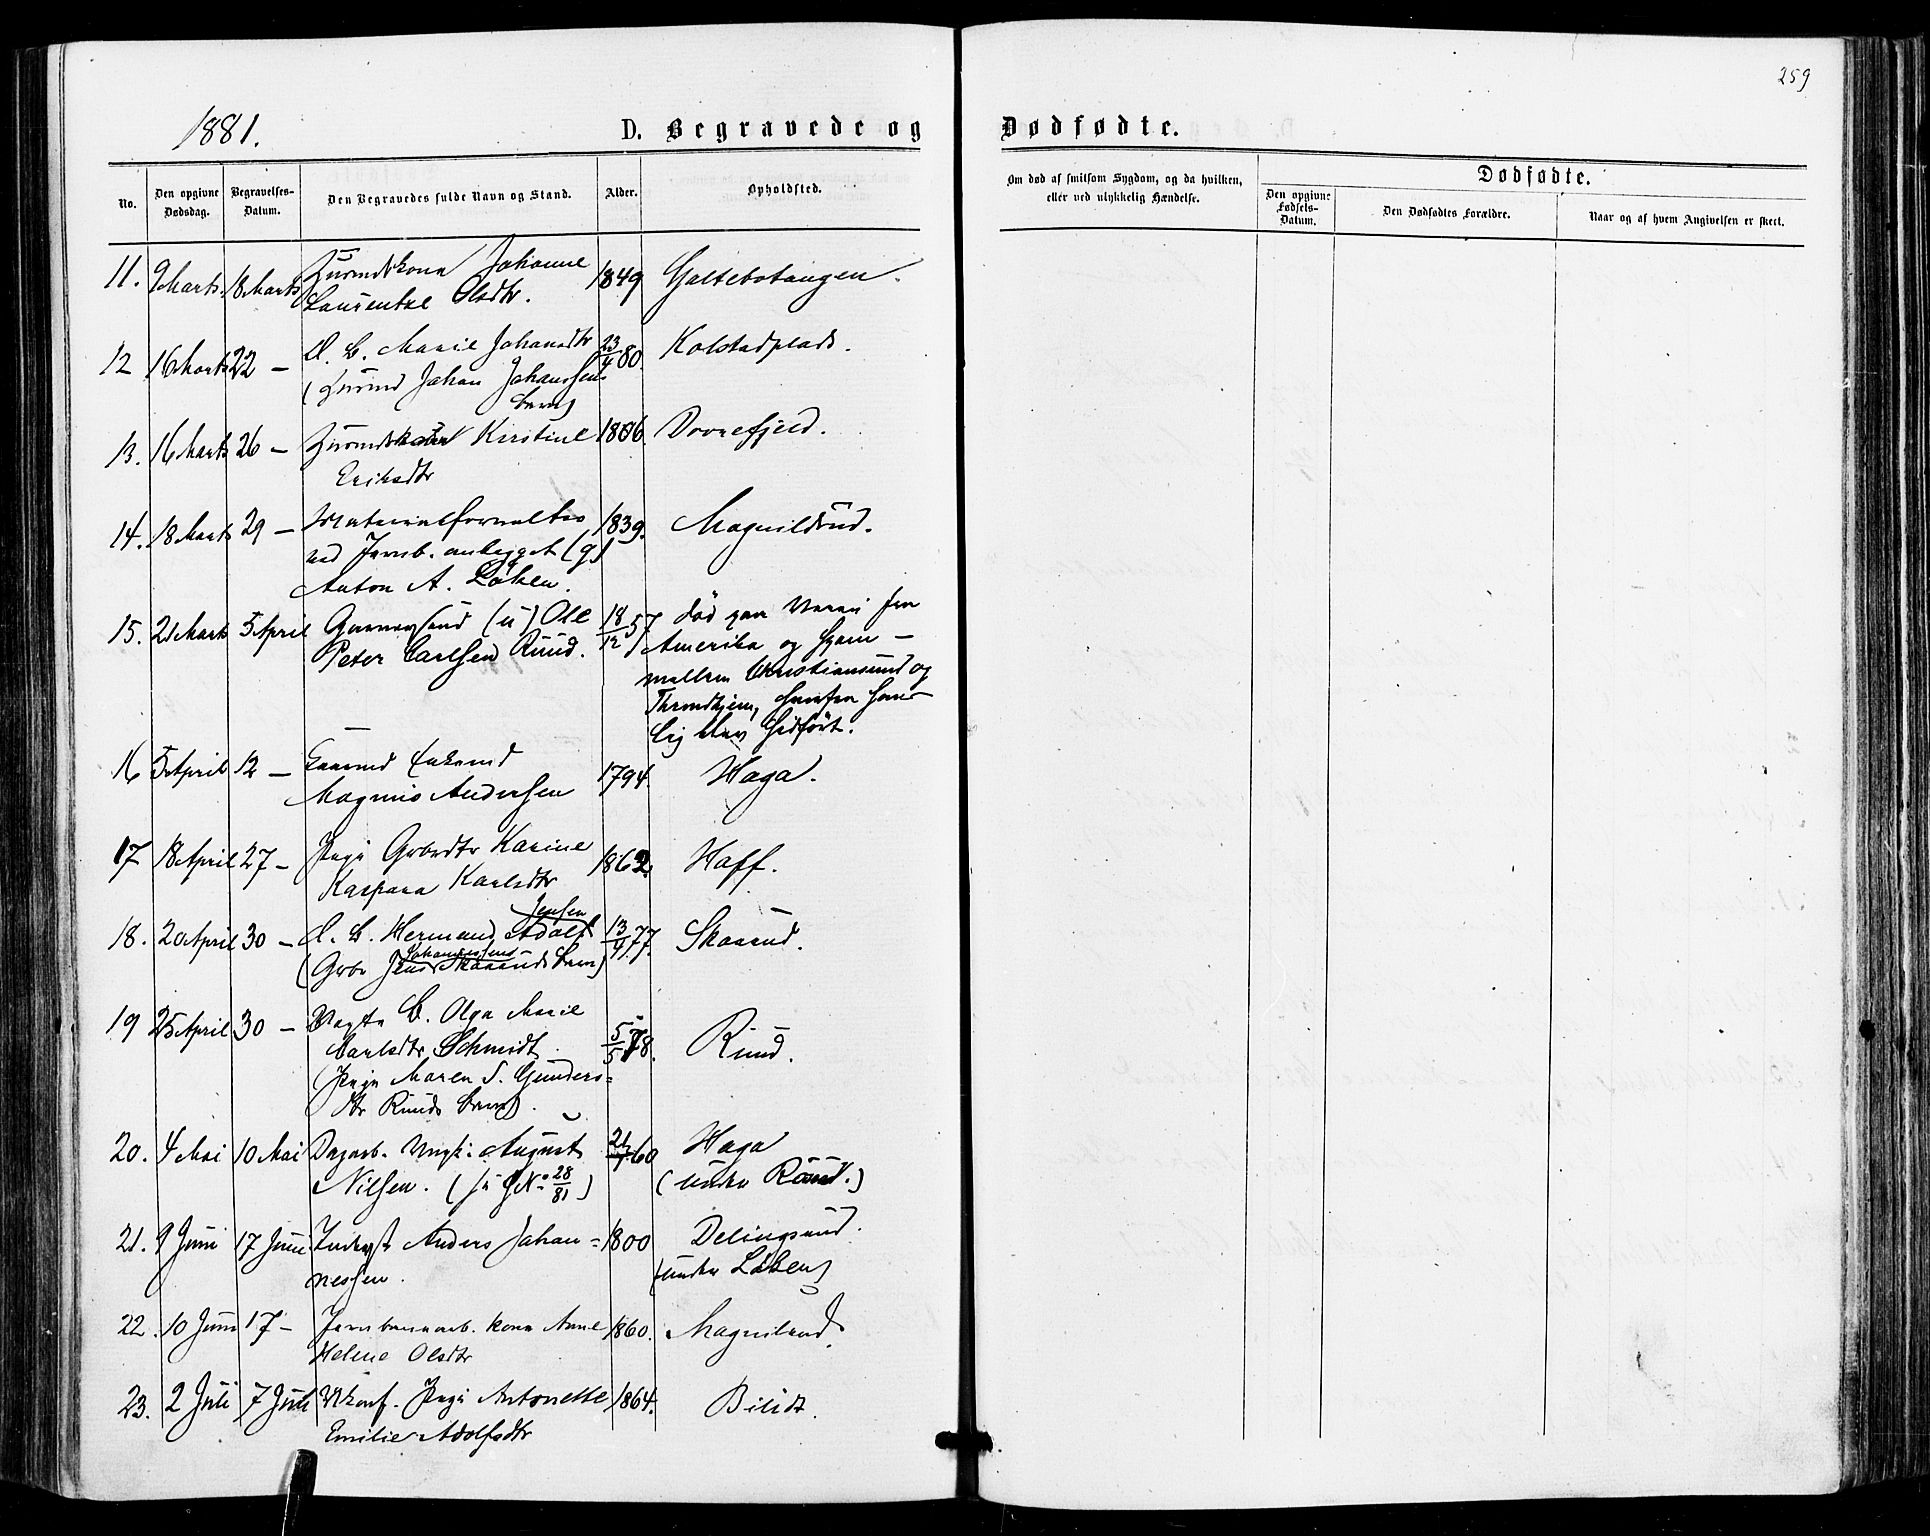 259
1881.
D. Begravede og Dødfødte.
No.
Den opgivne Dødsdag.
Begravelses-Datum.
Den Begravedes fulde Navn og Stand.
Alder.
Opholdsted.
Om død af smitsom Sygdom, og da hvilken, eller ved ulykkelig Hændelse.
Dødfødte.
Den opgivne Fødsels-Datum.
Den Dødfødtes Forældre.
Naar og af hvem Angivelsen er skeet.
11. 9 Marts. 18 Marts Johanne 1849 Galtebotangen.
Laurentze Olsdtr.
12 16 Marts 22 — Æ. B. Marie Johansdtr 23/4 80. Kolstadplads.
(Husmd Johan Johanssens
Barn)
13. 16 Marts 26 — Kirstine 1806. Dovrefjeld.
Eriksdtr
14. 18 Marts 29 — Materialforvalter 1839. Magnildrud.
ved Jernb. anlegget (g)
Anton A. Løken.
15. 21 Marts 5 April (u) Ole 18/12 57 død paa Veien fra
Peter Carlsen Ruud. Amerika og hjem —
mellem Christiansund og
Throndhjem, hvorfra hans
Lig blev hidført.
16 5 April 12 — Gaardmd Enkemd
Magnus Andersen 1794. Haga.
17 18 April 27 — Pige Gbrdtr Karine 1862. Haff.
Kaspara Karlsdtr
18. 20 April 30 — Æ. B. Hermand Adolf Jensen 13/4 77. Skaarud.
(Gbr Jens Johannessens Skaaruds Barn)
19 25 April 30 — Uægte B. Olga Marie 5/5 78. Ruud.
Carlsdtr Schmidt.
(Pige Maren S. Gunders=
dtr Ruuds Barn).
20. 4 Mai 10 Mai Dagarb. Ungk. August 21/7 60 Haga
Nilsen. (28/81) (under Ruud.)
21. 9 Juni 17 Juni Inderst Anders Johan= 1800 Delingsrud.
nessen. (under Løken)
22. 10 Juni 17 — Jernbanearb. kone Anne 1860. Magnilrud.
Helene Olsdtr
23. 2 Juli 7 Juli Ukonf. Pige Antonette 1864. Bilidt.
Emilie Adolfsdtr